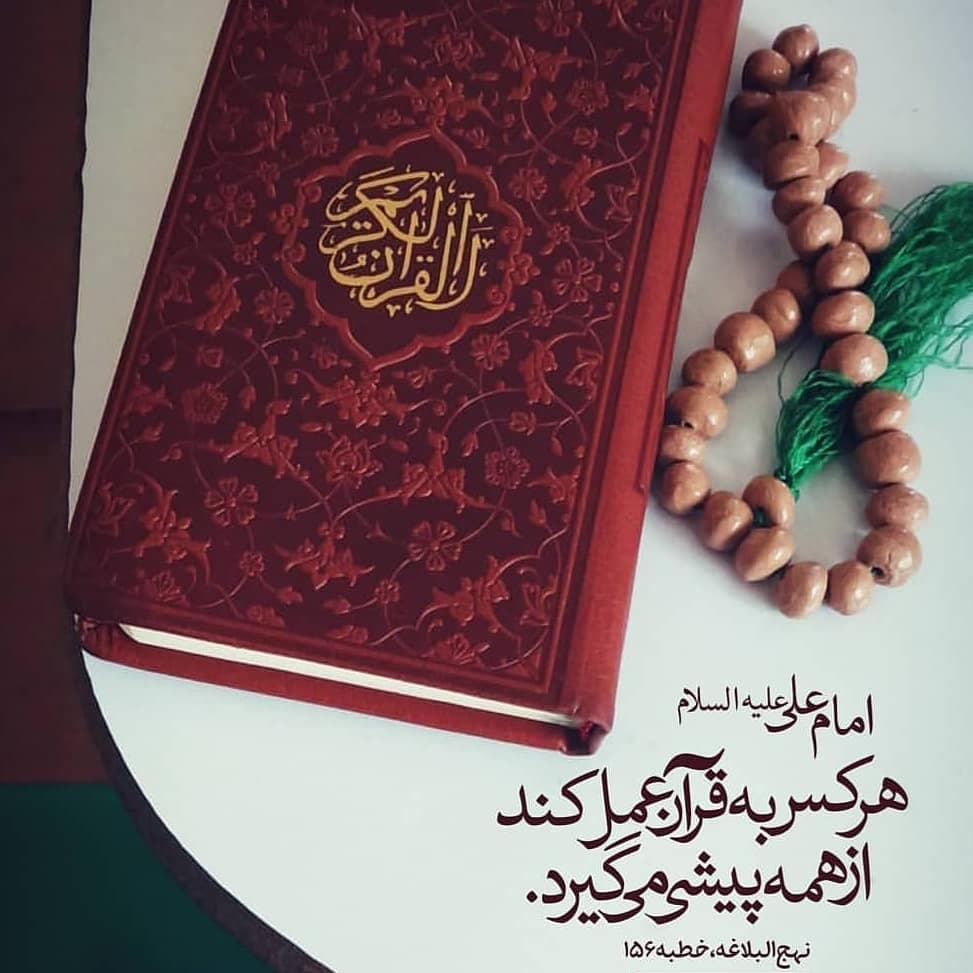 القرآن الكريم
امام علی علیه السلام
هر کس به قرآن عمل کند
از همه پیشی می‌گیرد.
نهج البلاغه، خطبه ۱۵۶